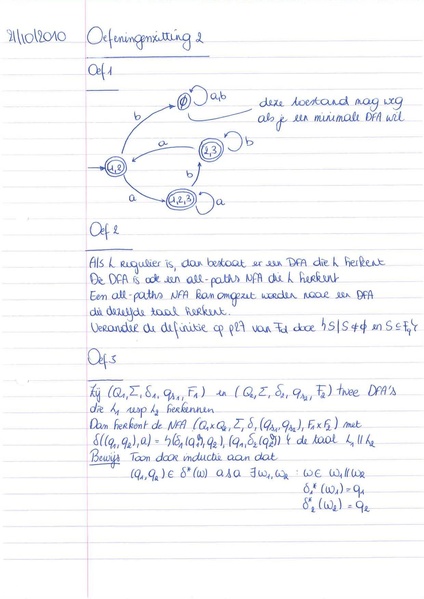 21/10/2010 Oefeningenzitting 2
Oef 1
∅ a,b
deze toestand mag weg
als je een minimale DFA wil
b
a
2,3
b
1,2
b
a
1,2,3
a
Oef 2
Als L regulier is, dan bestaat er een DFA die L herkent
De DFA is ook een all-paths NFA die L herkent
Een all-paths NFA kan omgezet worden naar een DFA
die dezelfde taal herkent.
Verander de definitie op p27 van F_d door {S | S ≠ ∅ en S ⊆ F_n}
Oef 3
Zij (Q₁, Σ, δ₁, q_s₁, F₁) en (Q₂, Σ, δ₂, q_s₂, F₂) twee DFA's
die L₁ resp L₂ herkennen
Dan herkent de NFA (Q₁×Q₂, Σ, δ, (q_s₁, q_s₂), F₁×F₂) met
δ((q₁,q₂),a) = {(δ₁(q₁,a),q₂), (q₁,δ₂(q₂,a))} de taal L₁ || L₂
Bewijs Toon door inductie aan dat
(q₁,q₂) ∈ δ*(w) asa ∃w₁,w₂ : w ∈ w₁ || w₂
δ₁*(w₁) = q₁
δ₂*(w₂) = q₂